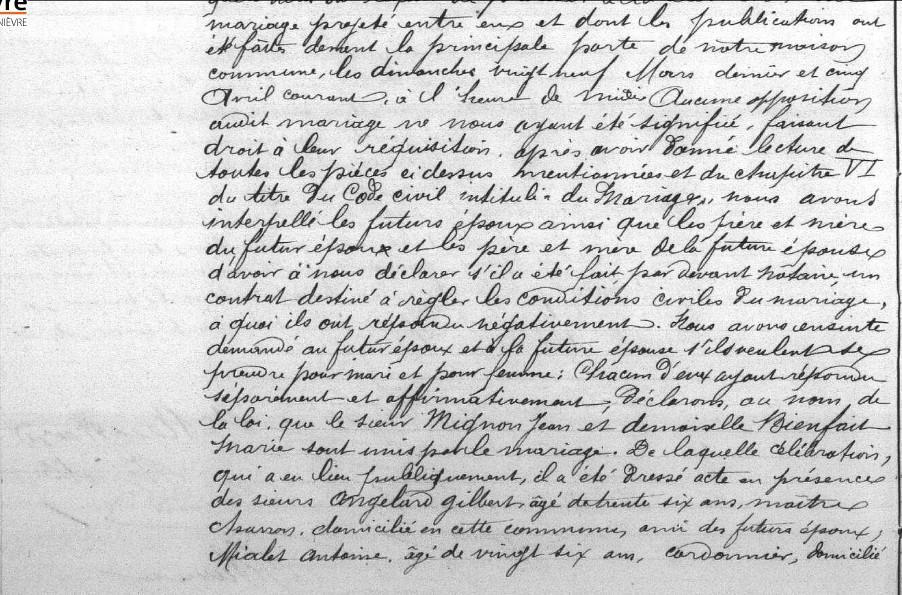 vre
NIÈVRE
mariage projeté entre eux et dont les publications ont
été faites devant la principale porte de notre maison
commune, les dimanches vingt neuf Mars dernier et cinq
Avril courant, à l'heure de midi. Aucune opposition
audit mariage ne nous ayant été signifié, faisant
droit à leur réquisition, après avoir donné lecture de
toutes les pièces ci dessus mentionnées et du chapitre VI
du titre du Code civil intitulé "du Mariage", nous avons
interpellé les futurs époux ainsi que les père et mère
du futur époux et les père et mère de la future épouse
d'avoir à nous déclarer s'il a été fait par devant notaire un
contrat destiné à règler les conditions civiles du mariage,
à quoi ils ont répondu négativement. Nous avons ensuite
demandé au futur époux et à la future épouse s'ils veulent se
prendre pour mari et pour femme; Chacun d'eux ayant répondu
séparément et affirmativement, Déclarons, au nom de
la loi, que le sieur Mignon Jean et demoiselle Bienfait
Marie sont unis par le mariage. De laquelle célébration,
qui a eu lieu publiquement, il a été dressé acte en présence
des sieurs Angelard Gilbert, âgé de trente six ans, maître
charron, domicilié en cette commune, ami des futurs époux,
Mialet Antoine, âgé de vingt six ans, cordonnier, domicilié